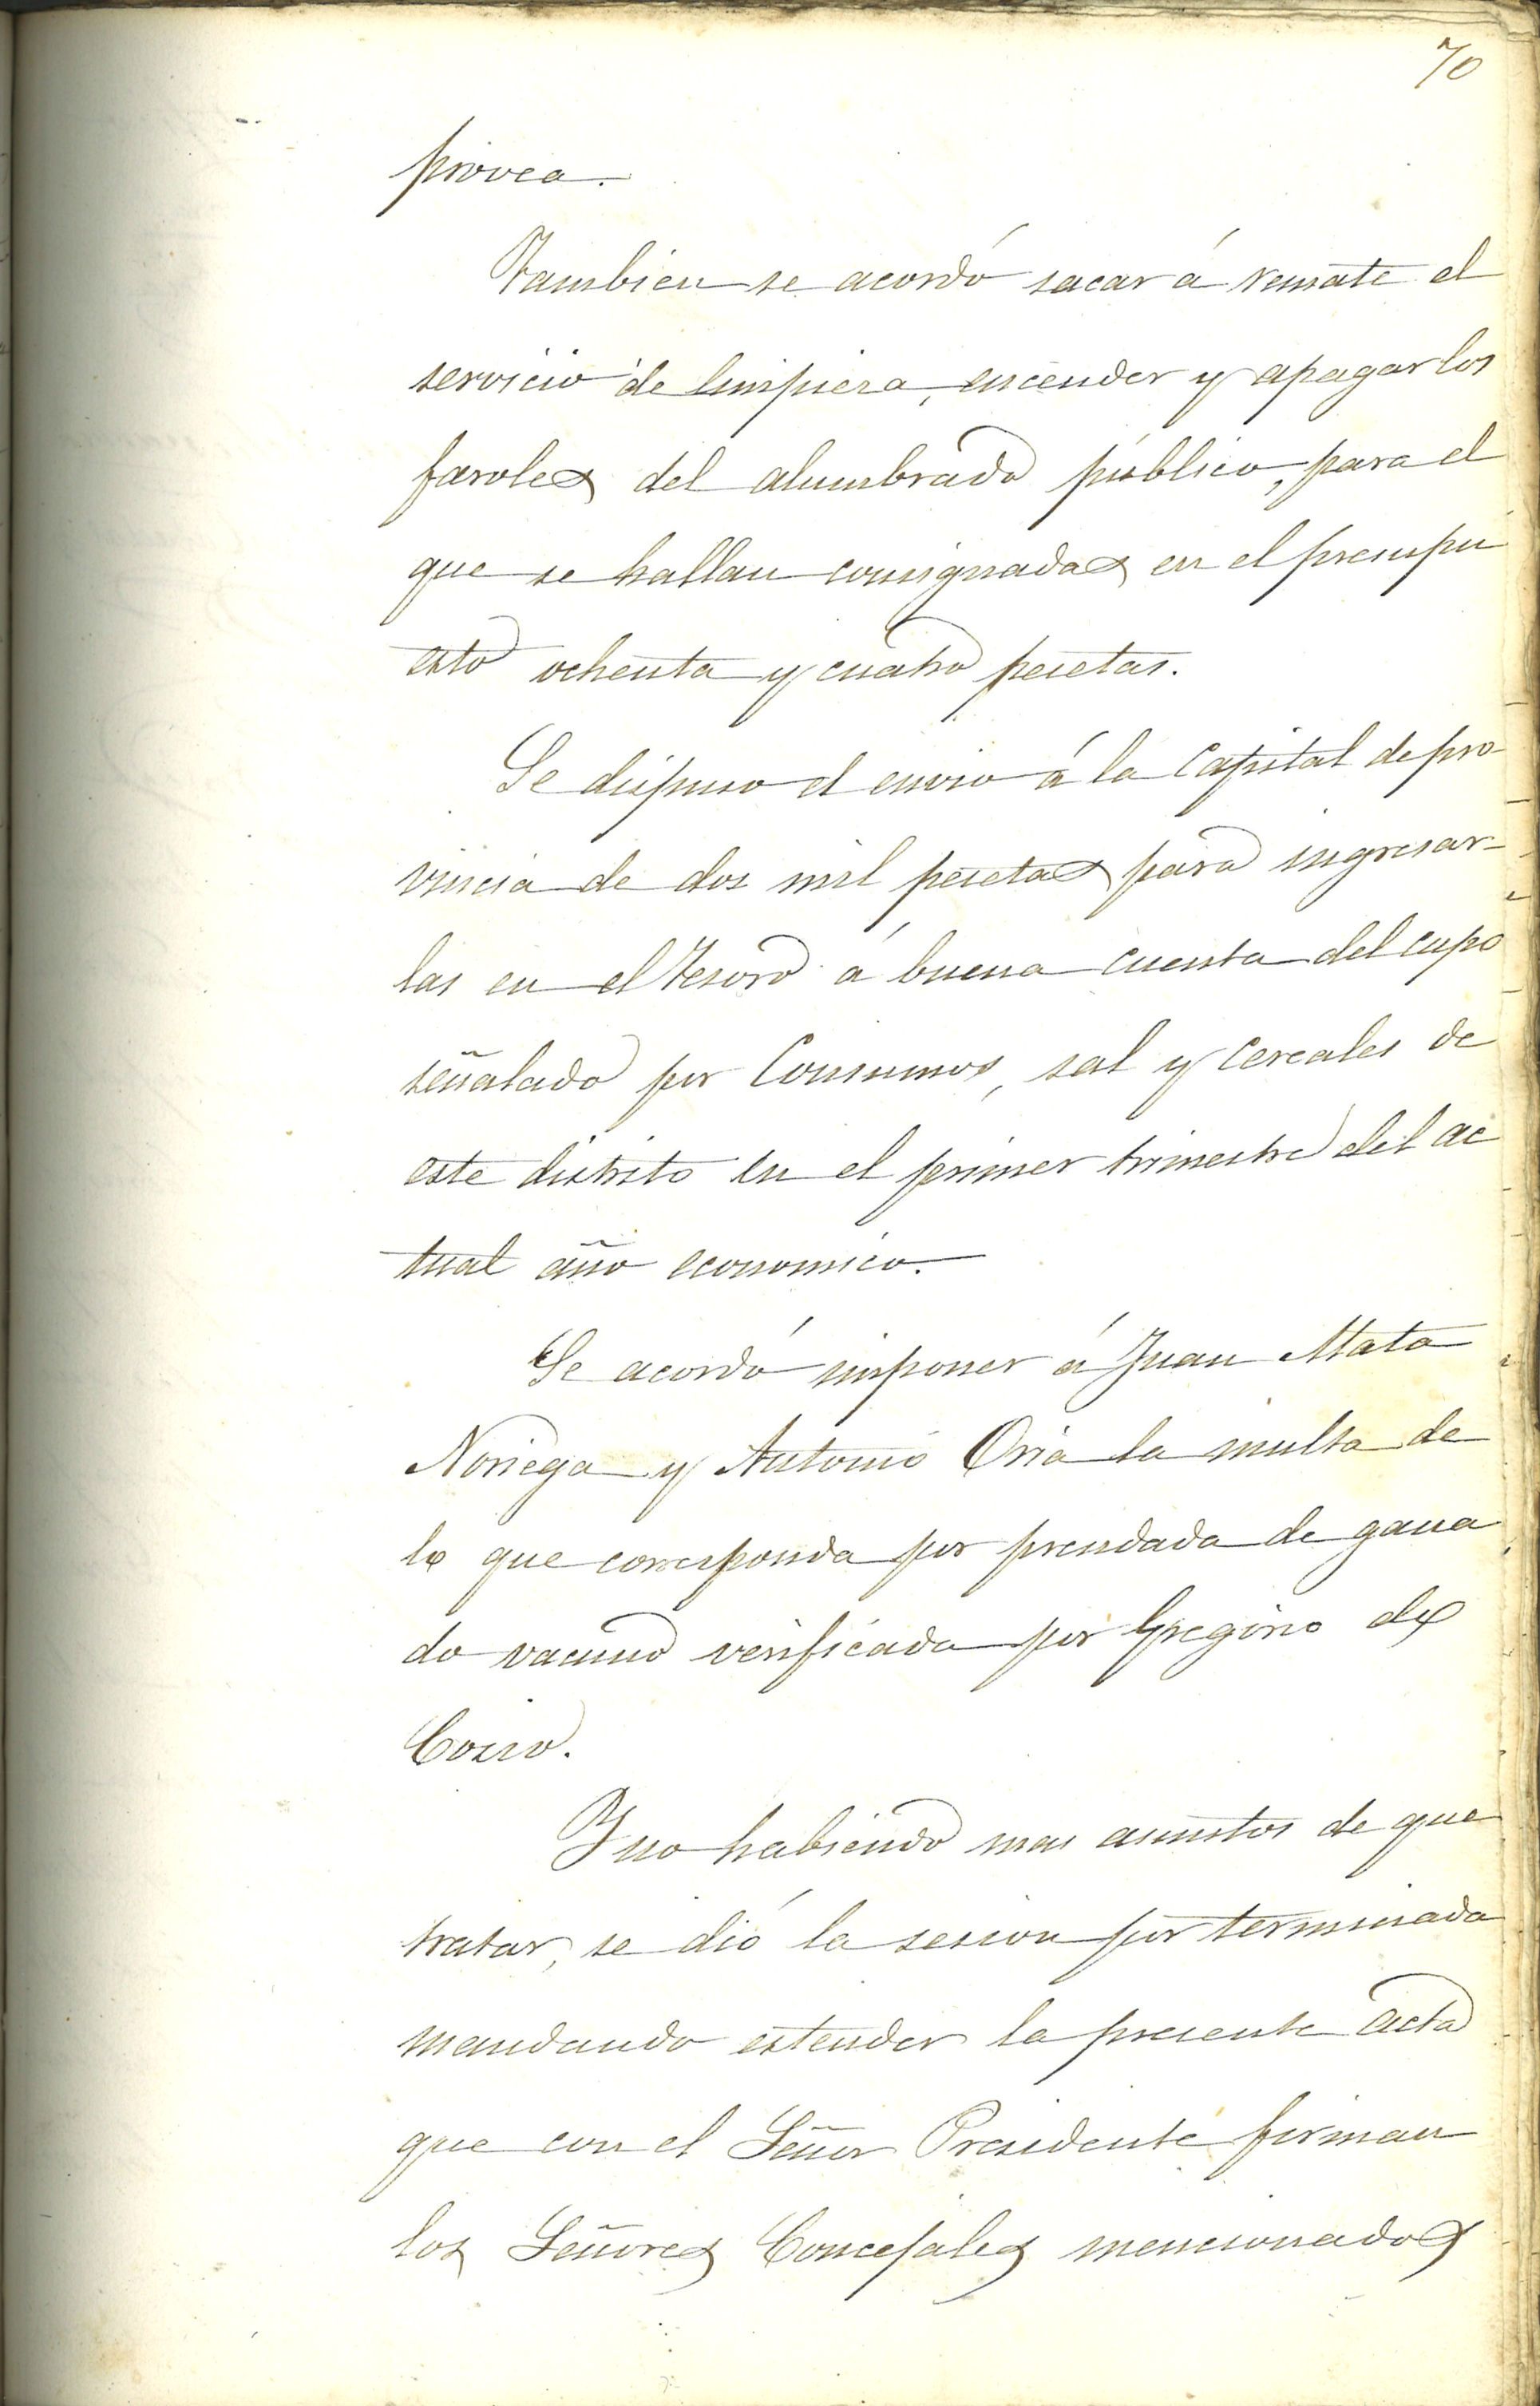 70
provea.
Tambien se acordó sacar á remate el
servicio de limpieza, encender y apagar los
faroles del alumbrado público, para el
que se hallan consignadas en el presupu
esto ochenta y cuatro pesetas.
Se dispuso el envio á la Capital de pro-
vincia de dos mil pesetas para ingresar-
las en el Tesoro á buena cuenta del cupo
señalado por Consumos, sal y cereales de
este distrito en el primer trimestre del ac
tual año economico.
Se acordó imponer á Juan Mata
Noriega y Antonio Oria la multa de
lo que corresponda por prendada de gana
do vacuno verificada por Gregorio de
Cosio.
Y no habiendo mas asuntos de que
tratar, se dió la sesion por terminada
mandando estender la presente acta
que con el Señor Presidente firman
los Señores Concejales mencionados